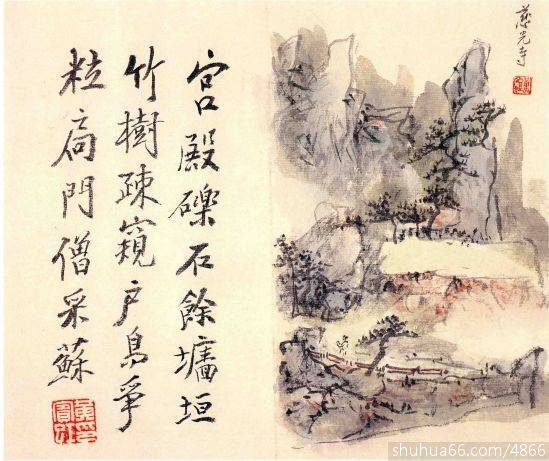 慈光寺
宮殿礫石餘墻垣
竹樹疎窺戶鳥爭
粒扃門僧采蘇
shuhua66.com/4866